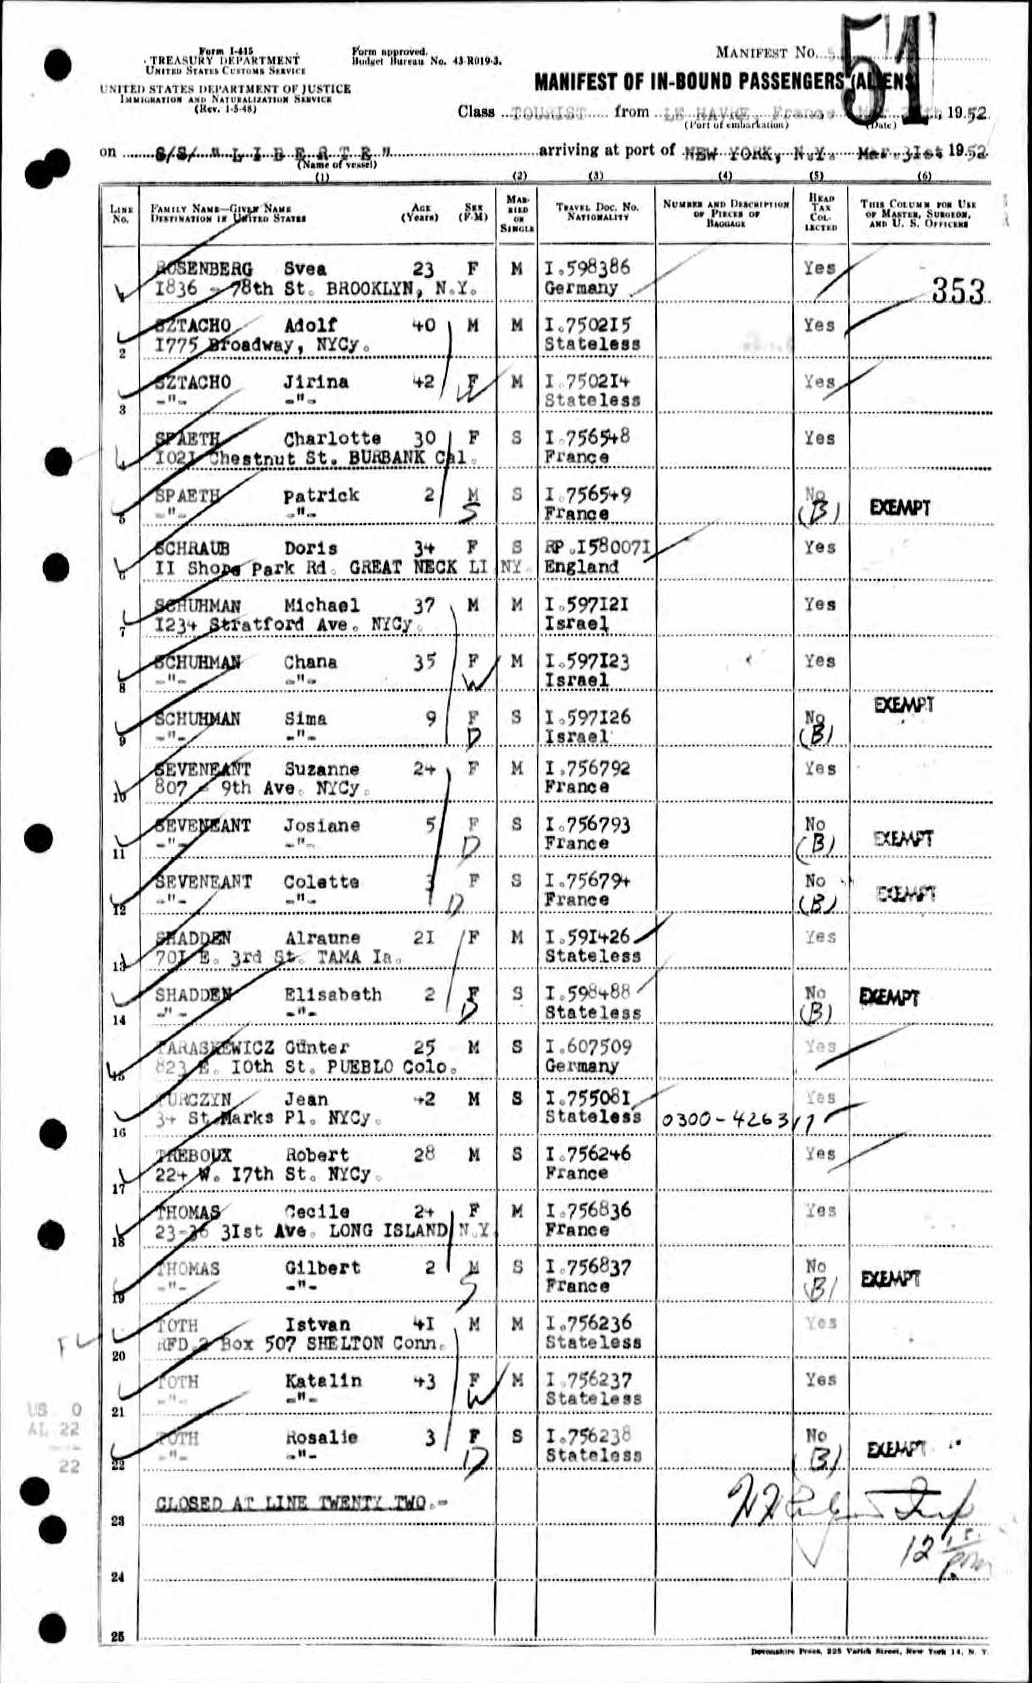 51
Form I-415
TREASURY DEPARTMENT
UNITED STATES CUSTOMS SERVICE
UNITED STATES DEPARTMENT OF JUSTICE
IMMIGRATION AND NATURALIZATION SERVICE
(Rev. 1-5-48)
Form approved.
Budget Bureau No. 43-R019-3.
MANIFEST NO.
MANIFEST OF IN-BOUND PASSENGERS (ALIENS)
Class TOURIST from LE HAVRE, France, 1952
(Port of embarkation) (Date)
on S/S/ "LIBERTE" arriving at port of NEW YORK, N.Y. Mar.31st 1952
(Name of vessel)
(1) (2) (3) (4) (5) (6)
LINE No. FAMILY NAME—GIVEN NAME DESTINATION IN UNITED STATES AGE (Years) SEX (F-M) MARRIED OR SINGLE TRAVEL DOC. NO. NATIONALITY NUMBER AND DESCRIPTION OF PIECES OF BAGGAGE HEAD TAX COLLECTED THIS COLUMN FOR USE OF MASTER, SURGEON, AND U. S. OFFICERS
ROSENBERG Svea 23 F M I.598386 Yes
1836 - 78th St. BROOKLYN, N.Y. Germany 353
SZTACHO Adolf 40 M M I.750215 Yes
2 1775 Broadway, NYCy. Stateless
SZTACHO Jirina 42 F M I.750214 Yes
3 -"- -"- W Stateless
SPAETH Charlotte 30 F S I.756548 Yes
4 1021 Chestnut St. BURBANK Cal. France
SPAETH Patrick 2 M S I.756549 No
5 -"- -"- S France (B) EXEMPT
SCHRAUB Doris 34 F S RP.1580071 Yes
6 11 Shore Park Rd. GREAT NECK LI NY. England
SCHUHMAN Michael 37 M M I.597121 Yes
7 1234 Stratford Ave. NYCy. Israel
SCHUHMAN Chana 35 F M I.597123 Yes
8 -"- -"- W Israel
SCHUHMAN Sima 9 F S I.597126 No EXEMPT
9 -"- -"- D Israel (B)
SEVENEANT Suzanne 24 F M I.756792 Yes
10 807 - 9th Ave. NYCy. France
SEVENEANT Josiane 5 F S I.756793 No
11 -"- -"- D France (B) EXEMPT
SEVENEANT Colette 3 F S I.756794 No
12 -"- -"- D France (B) EXEMPT
SHADDEN Alraune 21 F M I.591426 Yes
13 701 E. 3rd St. TAMA Ia. Stateless
SHADDEN Elisabeth 2 F S I.598488 No EXEMPT
14 -"- -"- D Stateless (B)
TARASKEWICZ Günter 25 M S I.607509 Yes
15 823 E. 10th St. PUEBLO Colo. Germany
TURCZYN Jean 42 M S I.755081 Yes
16 34 St.Marks Pl. NYCy. Stateless 0300-426317
TREBOUX Robert 28 M S I.756246 Yes
17 224 W. 17th St. NYCy. France
THOMAS Cecile 24 F M I.756836 Yes
18 23-36 31st Ave. LONG ISLAND N.Y. France
THOMAS Gilbert 2 M S I.756837 No
19 -"- -"- S France (B) EXEMPT
TOTH Istvan 41 M M I.756236 Yes
20 RFD.2 Box 507 SHELTON Conn. Stateless
TOTH Katalin 43 F M I.756237 Yes
21 -"- -"- W Stateless
TOTH Rosalie 3 F S I.756238 No
22 -"- -"- D Stateless (B) EXEMPT
US 0
AL 22
22
CLOSED AT LINE TWENTY TWO.-
23
12
24
25
Devonshire Press, 225 Varick Street, New York 14, N. Y.